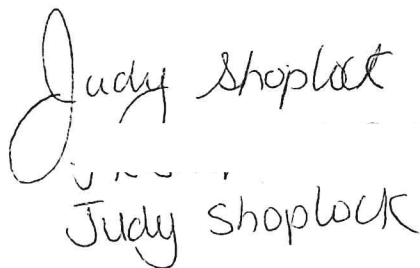 Judy Shoplock
Judy Shoplock